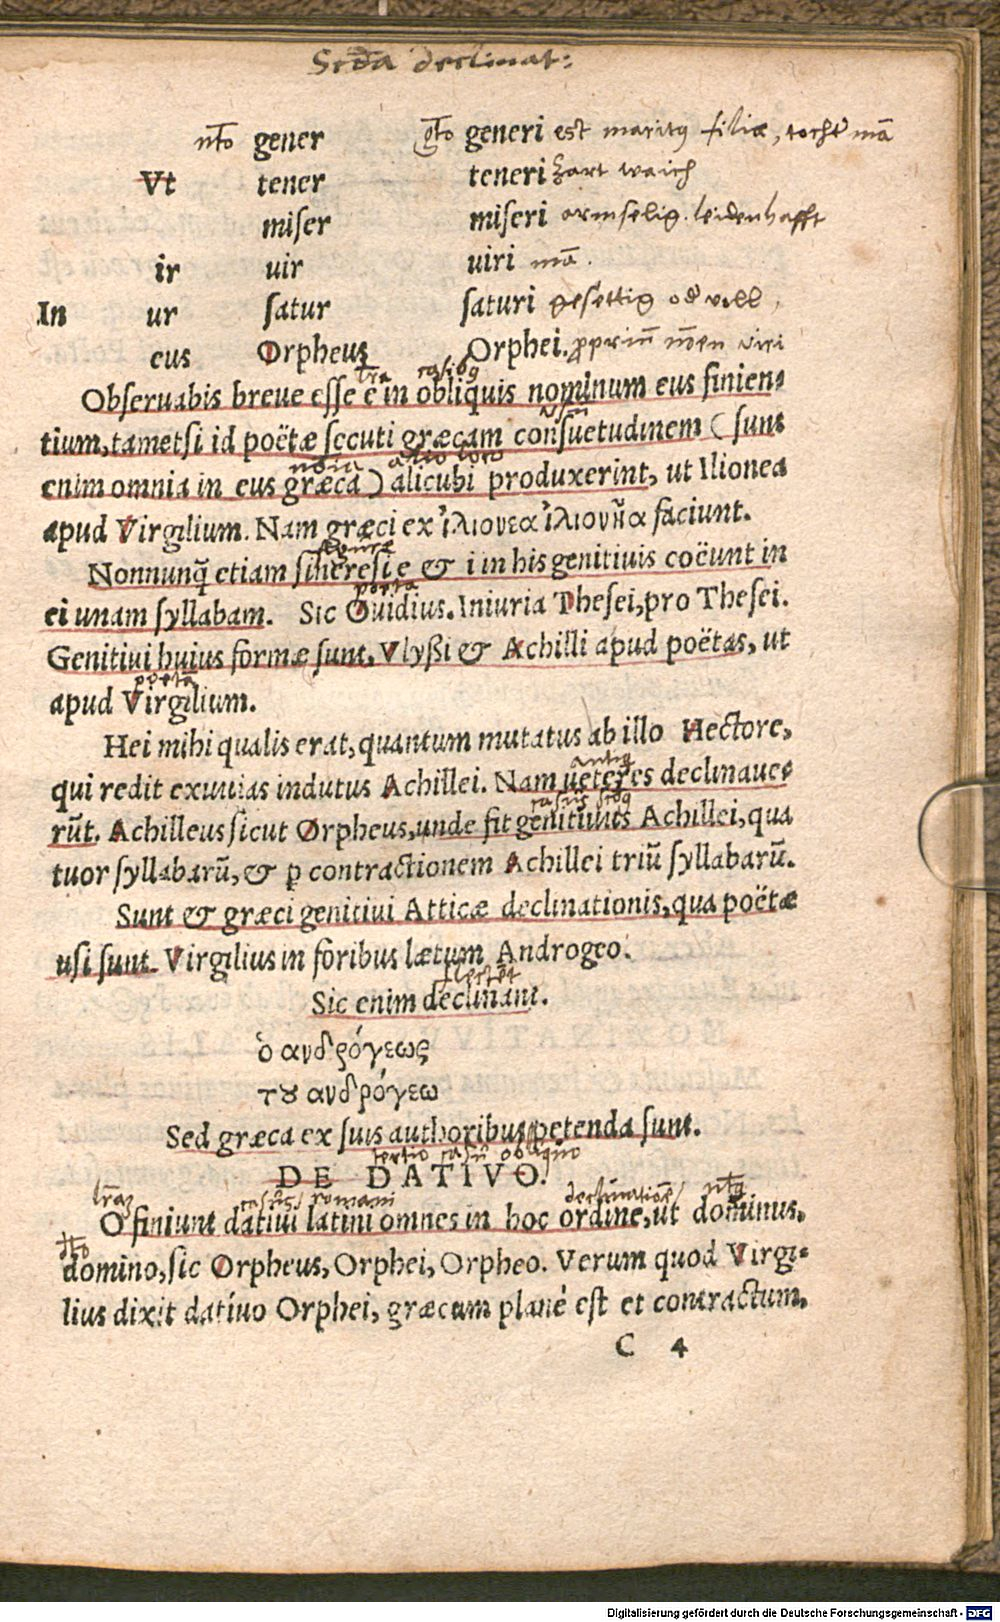 Secda declinat:
nto gener gto generi est maritus filiæ, tochtermā
Vt tener teneri zart waich
miser miseri armselig. leidenhafft
ir uir uiri mā.
In ur satur saturi gesettig od voll,
eus Orpheus Orphei. viri
lra casibus
Obseruabis breue esse e in obliquis nominum eus finien-
tium, tametsi id poëtæ secuti græcam consuetudinem (sunt
noīa alio loco
enim omnia in eus græca) alicubi produxerint, ut Ilionea
apud Virgilium. Nam græci ex ἰλιονεα ἰλιονῆα faciunt.
figuræ
Nonnunq̃ etiam sineresi e & i in his genitiuis coëunt in
poeta
ei unam syllabam. Sic Ouidius. Iniuria Thesei, pro Thesei.
Genitiui huius formæ sunt, Vlyßi & Achilli apud poëtas, ut
poeta
apud Virgilium.
Hei mihi qualis erat, quantum mutatus ab illo Hectore,
antiq
qui redit exuuias indutus Achillei. Nam ueteres declinaue-
casus
rūt. Achilleus sicut Orpheus, unde fit genitiuus Achillei, qua
tuor syllabarū, & p contractionem Achillei triū syllabarū.
Sunt & græci genitiui Atticæ declinationis, qua poëtæ
usi sunt. Virgilius in foribus lætum Androgeo.
flectēt
Sic enim declinant.
ὁ ανδρόγεως
του ανδρόγεω
Sed græca ex suis authoribus petenda sunt.
tertio casu obliquo
DE DATIVO.
casus romani declinatione
O finiunt datiui latini omnes in hoc ordine, ut dominus,
dto
domino, sic Orpheus, Orphei, Orpheo. Verum quod Virgi-
lius dixit datiuo Orphei, græcum planè est et contractum,
C 4
Digitalisierung gefördert durch die Deutsche Forschungsgemeinschaft - DFG